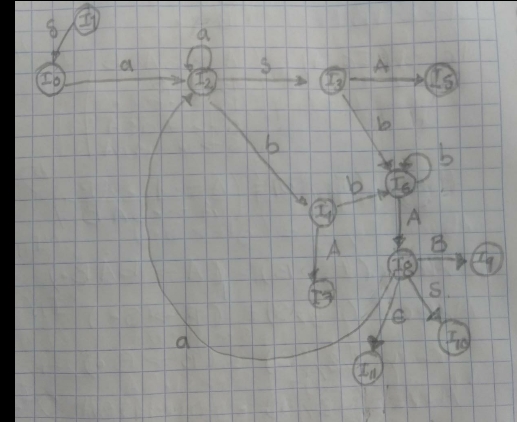 I1
S
a
I0
a
I2
S
I3
A
I5
b
b
I6
b
b
A
A
I8
B
I9
S
a
C
I10
I11